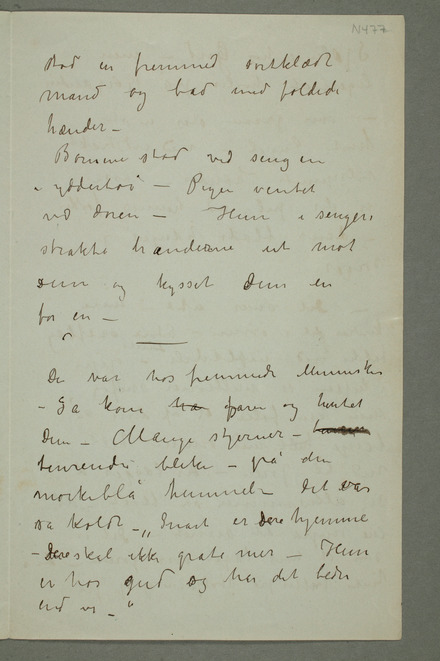 N477
stod en fremmed svitklædt
mand og bad med foldede
hænder –
Børnene stod ved sengen
i ydderteøi – Pigen ventet
ved døren – Hun i sengen
strakte hænderne ut mot
dem og kysset dem en
for en –
De var hos fremmede Mennesker
– Så kom faren og hentet
dem – Mange stjerner –
blekke – på den
mørkeblå himmelen det var
så koldt – „Snart er Dere hjemme
– Dere skal ikke gråte mer – Hun
er hos gud og har det bedre
end vi – "